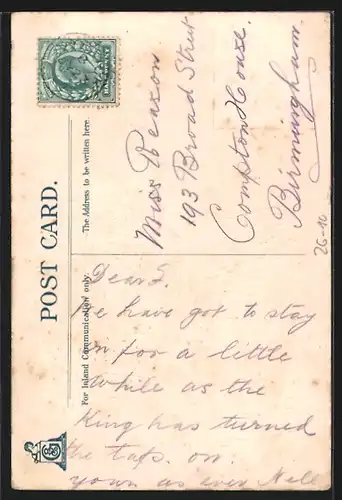 POST CARD.
The Address to be written here.
For Inland Communication only.
HALFPENNY
Miss Reason
193 Broad Street
Compton House.
Birmingham.
26-10
Dear S.
We have got to stay
in for a little
while as the
King has turned
the taps on.
yours as ever Nell